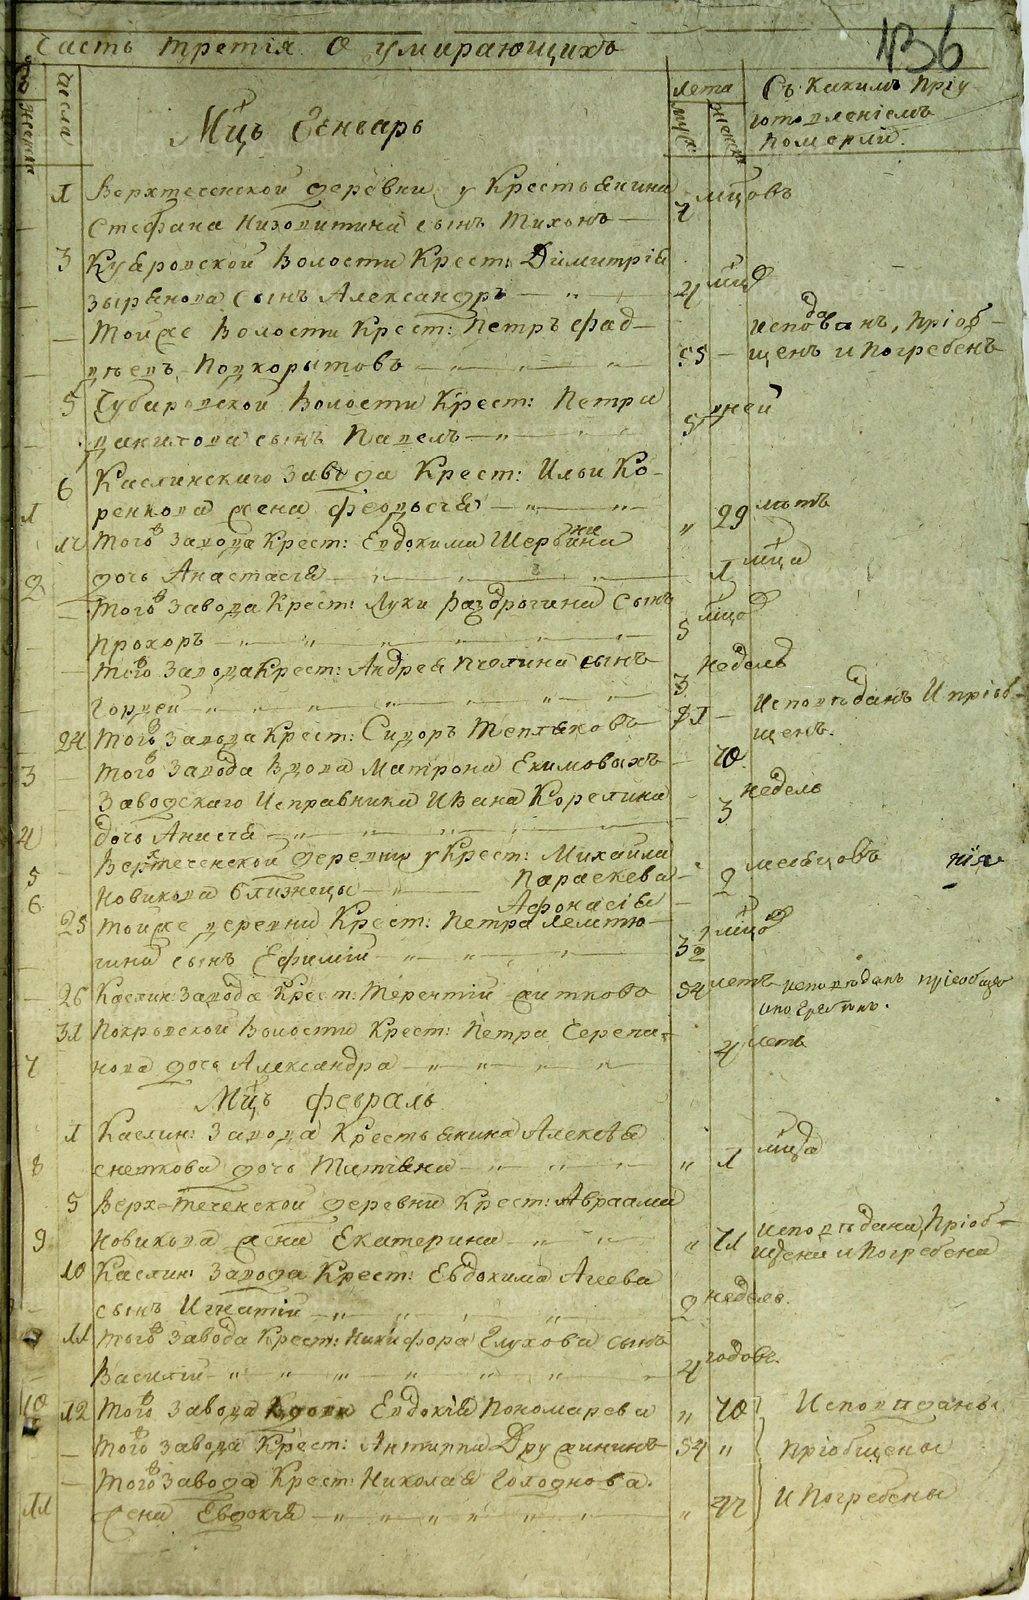 136
Часть третія о умирающихъ
числа
женска
лета
муж:
женска
Съ Какимъ Пріу-
готовленіемъ
Померли.
Мцъ Генварь
1 Верхтеченской деревни у Крестьянина
Стефана Низовитина сынъ Тихонъ — 7 мцовъ
3 Кубаровской Волости Крест: Димитрія
Зырянова Сынъ Александръ — " — 4 мцд
— Тойже Волости Крест: Петръ Фад- Исповѣданъ, Пріоб-
дѣевъ Подкорытовъ — " — 55 — щенъ и Погребенъ
5 Чубаровской Волости Крест: Петра
Данилова сынъ Павелъ — " — 5 дней
6 Каслинскаго Завода Крест: Ильи Ко-
1 ренкова жена Феодосія — " — " 29 лѣтъ
17 Тогоѳ Завода Крест: Евдокима Щербинина
2 дочь Анастасія — " — 1 мца
— Тогоѳ Завода Крест: Луки Раздрогина Сынъ
Прохоръ — " — 5 мцовъ
— Тогоѳ Завода Крест: Андрея Пчелина сынъ
Гордей — " — 3 недель
24 Тогоѳ Завода Крест: Сидоръ Тепляковъ — 71 — Исповѣданъ И пріоб-
щенъ.
3 — Тогоѳ Завода Вдова Матрона Екимовыхъ — 70.
— Заводскаго Исправника Ивана Корелина
4 дочь Анисія — " — 3 недель
Верхтеченской деревни у Крест: Михаила
5 Новикова близнецы — " — Параскева — 2 месяцовъ
6 Афонасія —
25 Тойже деревни Крест: Петра Лемтю-
гина сынъ Ефимій — " — 3 мцов
— 26 Каслин: Завода Крест: Терентій Житково 54 летъ исповѣданъ пріобщен
и погребенъ.
31 Покровской Волости Крест: Петра Черепа-
7 нова дочь Александра — " — 4 летъ
Мцъ февраль
1 Каслин: Завода Крестьянина Алексѣя
8 Снеткова дочь Татіяна — " — " 1 мцда
5 Верх=Теченской деревни Крест: Авраама
9 Новикова жена Екатерина — " — " 71 Исповѣдана, Пріоб-
щена и Погребена
10 Каслин: Завода Крест: Евдокима Агеева
сынъ Игнатій — " — 2 недель.
11 Тогоѳ Завода Крест: Никифора Глухова сынъ
Василій — " — 4 годовъ.
10 12 Тогоѳ Завода Вдова Евдокія Пономарева " 70 Исповѣданы
— Тогоѳ Завода Крест: Антипа Дружининъ 54 " Пріобщены
— Тогоѳ Завода Крест: Николая Голоднова.
11 жена Евдокія — " — " 47 И Погребены